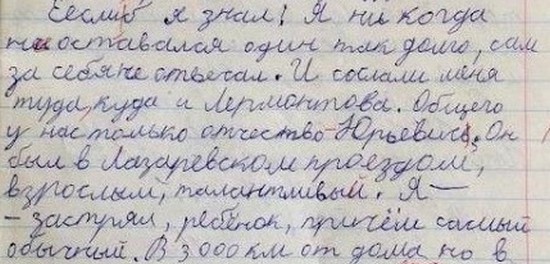 Еслиб я знал! Я ни когда
не оставался один так долго, сам
за себя не отвечал. И сослали меня
туда, куда и Лермонтова. Общего
у нас только отчество - Юрьевич. Он
был в Лазаревском проездом,
взрослый, талантливый. Я —
- застрял, ребёнок, причём самый
обычный. В 3 000 км от дома но в